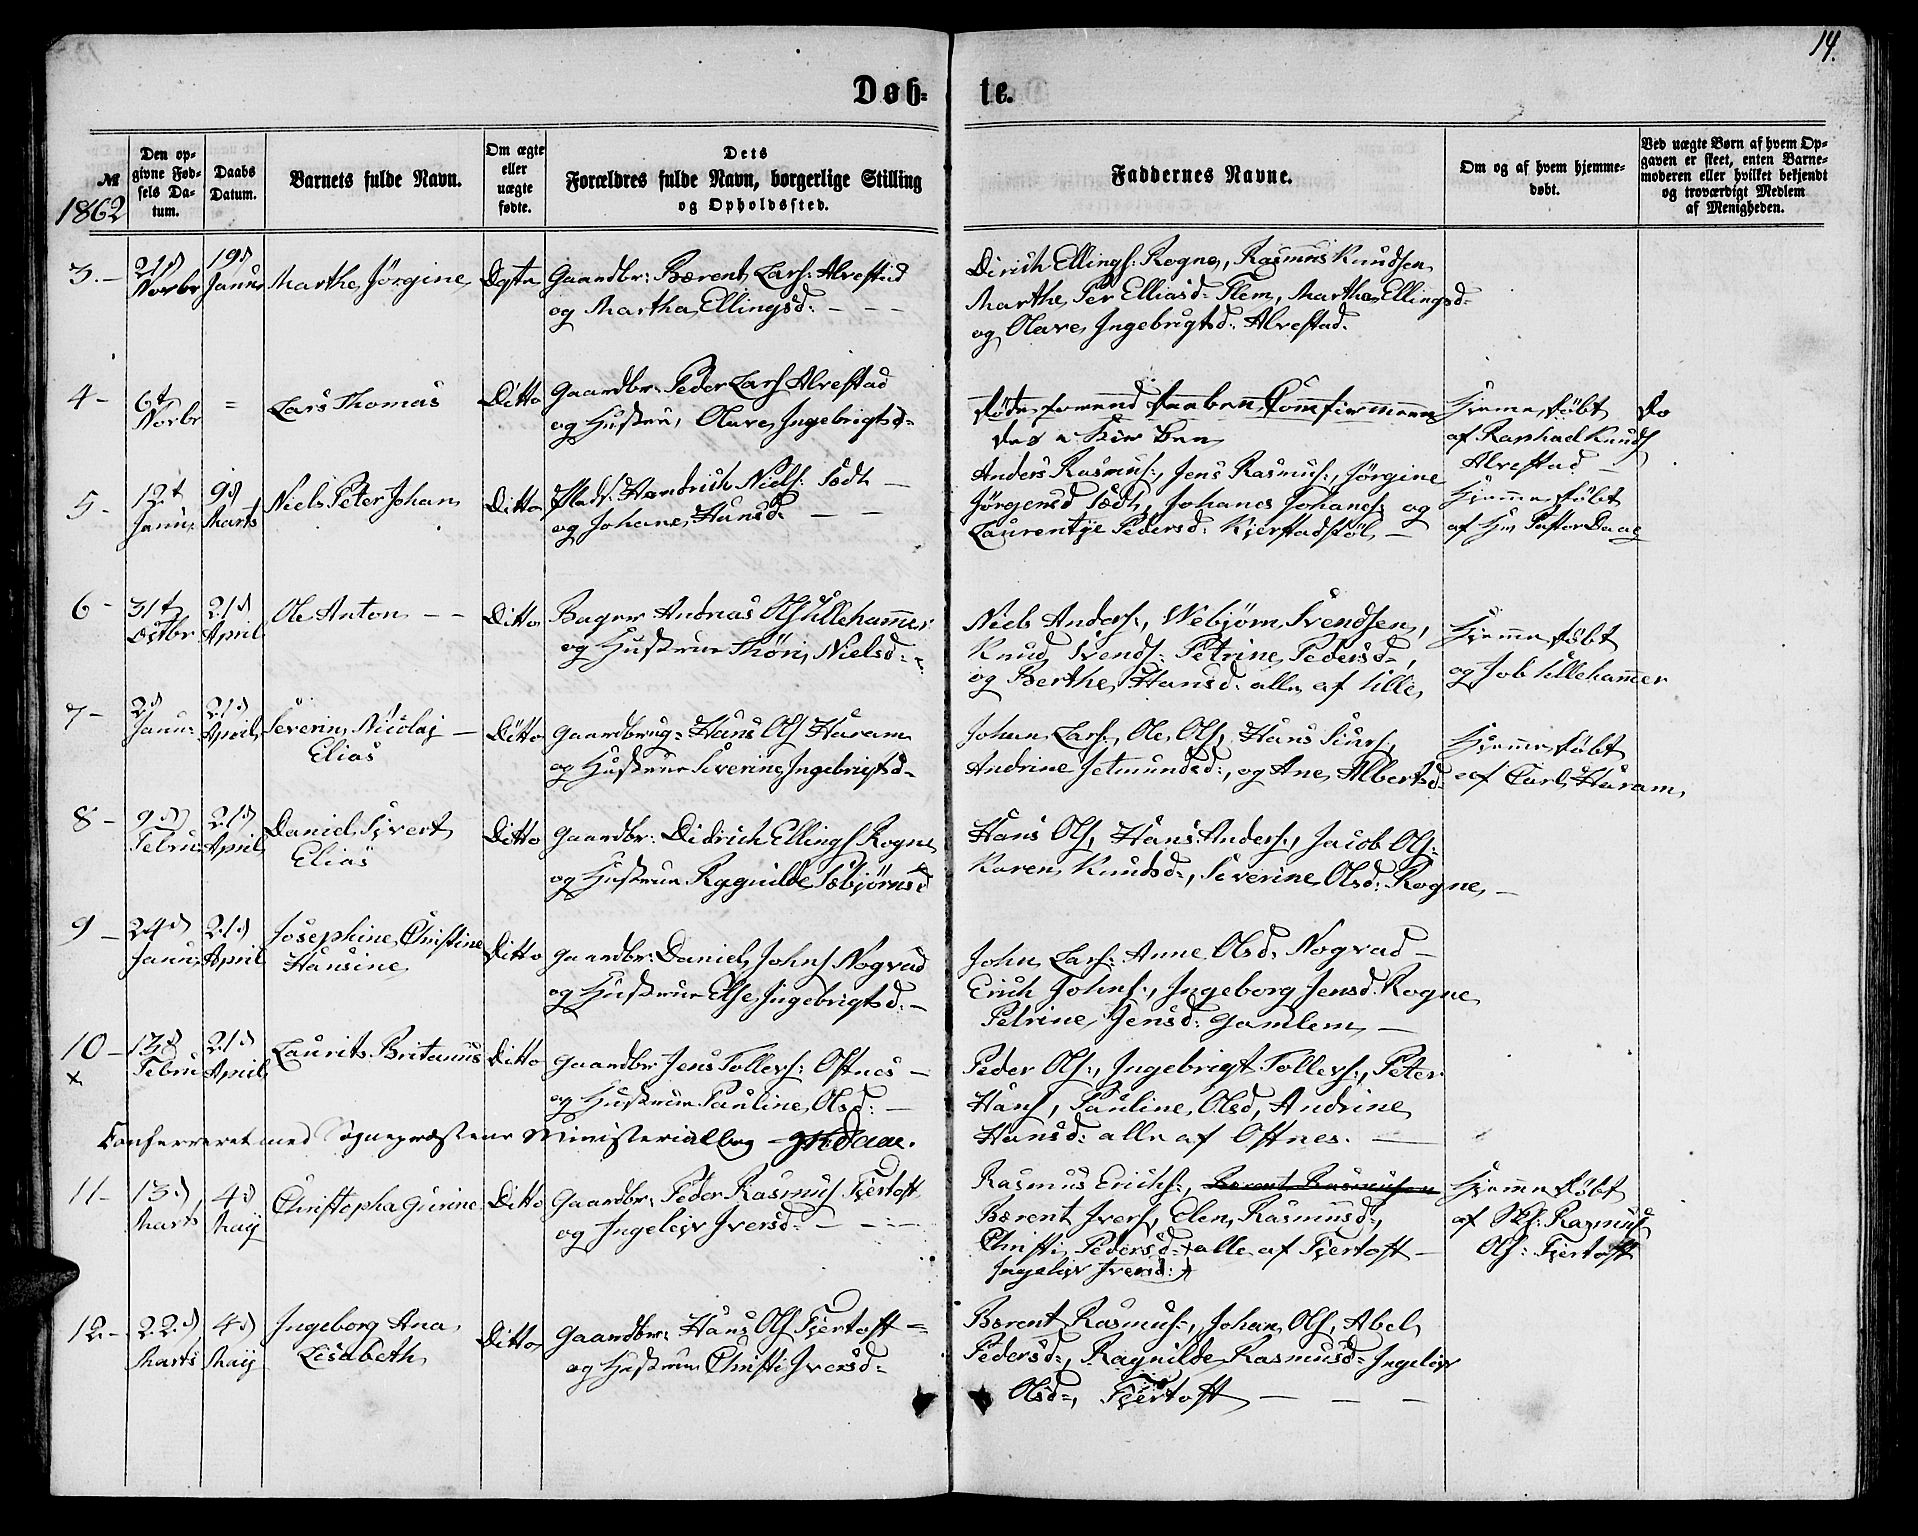 14.
Døb- te.
№ 1862
Den opgivne Fødsels Datum.
Daabs Datum.
Barnets fulde Navn.
Om ægte eller uægte fødte.
Dets Forældres fulde Navn, borgerlige Stilling og Opholdssted.
Faddernes Navne.
Om og af hvem hjemmedøbt.
Ved uægte Børn af hvem Opgaven er skeet, enten Barnemoderen eller hvilket bekjendt og troværdigt Medlem af Menigheden.
3.- 21d Norbr 19d Januar Marthe Jörgine Ægte
Gaardbr: Bærent Lars: Alvestad
og Martha Ellingsd: - - -
Dirich Ellings: Rogne, Rasmus Knudsen
Marthe Per Elliasd: Flem, Martha Ellingsd-
og Olave Ingebrigtsd: Alvestad.
4- 6t Norbr = Lars Thomas Ditto
Gaardbr: Peder Lars Alvestad
og Hustru, Olave Ingebrigtsd-
Hjeme døbt
af Raphael Knuds
Alvestad -
5- 12t Janu: 9d Marts Niels Peter Johan Ditto
Plads: Hendrich Niels: Sædt -
og Johane Hansd: - -
Anders Rasmus:, Jens Rasmus:, Jörgine
Jörgensd Sædt, Johanes Johanes: og
Laurentze Pedersd: Kjerstadstöl -
Hjemme døbt
af Hr Pastor Daae
6- 31t Octbr 21d April Ole Anton - - Ditto
Bager Andreas Ols Ullehammer
og Hustrue Thöri Nielsd:-
Niels Anders:, Webjörn Svendsen,
Knud Svends: Petrine Pedersd-,
og Berthe Hansd: alle af Ulle
Hjemme døbt
og Job Ullehammer
7- 2d Janu: 21d April Severin Nicolaj - Elias Ditto
Gaardbrug: Hans Ols Haram
og Hustrue Severine Ingebrigtsd-
Johan Lars:, Ole Ols, Hans Siurs,
Andrine Jetmundsd:, og Ane Albertsd-
Hjemme døbt
af Carl Haram
8- 9d Febru 21d April Daniel Sivert Elias Ditto
Gaardbr: Didrich Ellings Rogne
og Hustrue Ragnilde Sæbjörnsd
Hans Ols, Hans Anders:, Jacob Ols:
Karen Knudsd-, Severine Olsd: Rogne -
9- 24d Janu: 21d April Josephine Christine Hansine Ditto
Gaardbr: Daniel Johns Nogvad
og Hustrue Else Ingebrigtsd:-
John Lars: Anne Olsd: Nogvad -
Erich Johns:, Ingeborg Jensd: Rogne
Petrine Jensd: Gamlem -
10- x 13d Febru 21d April Laurits Britanus Ditto
Gaardbr Jens Tollevs: Ostnes -
og Hustrue Pauline Olsd: -
Peder Ols:, Ingebrigt Tollevs:, Peter
Hans, Pauline Olsd, Andrine
Hansd: alle af Ostnes. -
Conferreret med Sognepræstens Ministerialbog - Daae.
11- 13d Marts 4d Maij Christopha Gurine Ditto
Gaardbr: Peder Rasmus Fjertoft
og Ingeleiv Iversd: - - -
Rasmus Erichs:, Berent Rasmusen
Bærent Ivers, Elen Rasmusd:,
Christi Pedersd: + alle af Fjertoft -
Ingeleiv Iversd: +
Hjemme døbt
af Skl: Rasmus
Ols: Fjertoft
12- 22d Marts 4d Maij Ingeborg Ana Lisabeth Ditto
Gaardbr: Hans Ols Fjertoft -
og Hustrue Christi Iversd-
Berent Rasmus:, Johan Ols, Abel
Pedersd:, Ragnilde Rasmusd- Ingeleiv
Olsd-, Fjertoft - - -